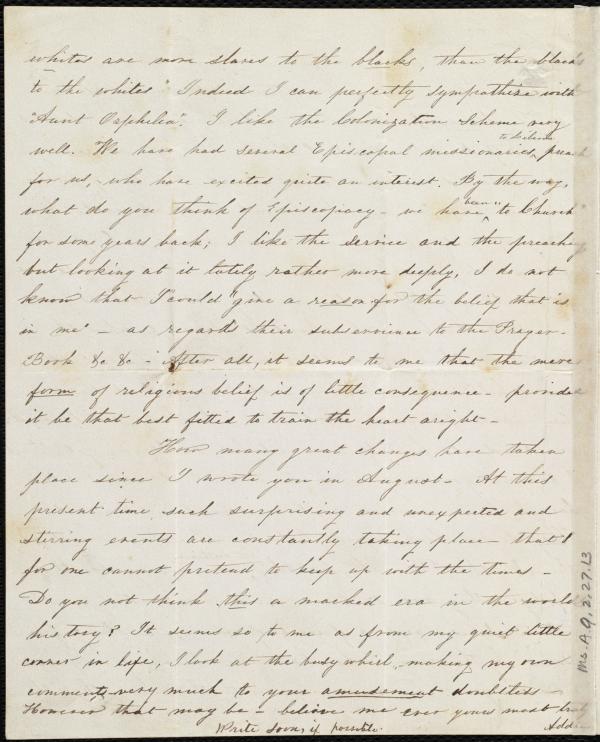 whites are more slaves to the blacks, than the blacks
to the whites" Indeed I can perfectly sympathize with
"Aunt Orphelia". I like the Colonization Scheme very
to Liberia
well. We have had several Episcopal missionaries, preach
for us, who have excited quite an interest. By the way,
been
what do you think of Episcopacy - we have to Church
for some years back; I like the service and the preaching
but looking at it lately rather more deeply, I do not
know that I could "give a reason for the belief that is
in me" - as regards their subservience to the Prayer-
Book &c &c - After all, it seems to me that the mere
form of religious belief is of little consequence - provided
it be that best fitted to train the heart aright -
How many great changes have taken
place since I wrote you in August - At this
present time such surprising and unexpected and
stirring events are constantly taking place - that I
for one cannot pretend to keep up with the times -
Do you not think this a marked era in the world
history? It seems so to me as from my quiet little
corner in life, I look at the busy whirl, making my own
comments very much to your amusement doubtless -
However that may be - believe me ever yours most truly
Write soon, if possible. Addie
Ms. A. 9. 2. 27. 13